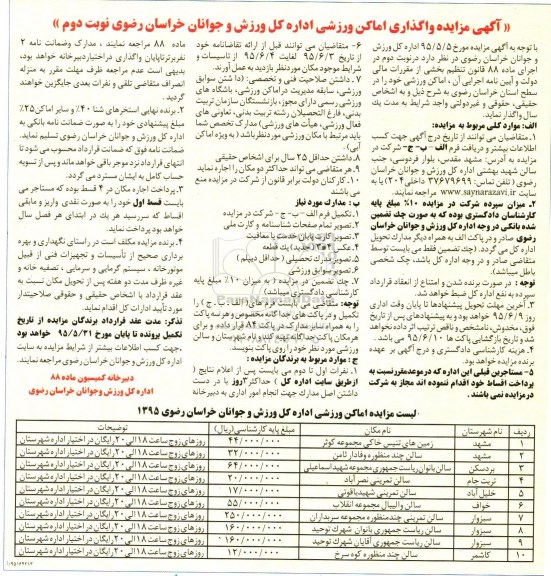 « آگهی مزایده واگذاری اماکن ورزشی اداره کل ورزش و جوانان خراسان رضوی نوبت دوم »
با توجه به آگهی مزایده مورخ ۹۵/۵/۵ اداره کل ورزش
و جوانان خراسان رضوی در نظر دارد در نوبت دوم در
اجرای ماده ۸۸ قانون تنظیم بخشی از مقررات مالی
دولت و آیین نامه اجرایی آن ، اماکن ورزشی خود را در
سطح استان خراسان رضوی به شرح ذیل و به اشخاص
حقیقی، حقوقی و غیردولتی واجد شرایط به مدت یک
سال واگذار نماید.
الف: موارد کلی مربوط به مزایده:
۱. متقاضیان می توانند از تاریخ درج آگهی جهت کسب
اطلاعات بیشتر و دریافت فرم الف – ب – ج – شرکت در
مزایده به آدرس: مشهد مقدس، بلوار فردوسی، جنب
سالن شهید بهشتی اداره کل ورزش و جوانان خراسان
رضوی ( تلفن تماس: ۳۷۶۷۹۶۹۹ داخلی ۲۰۴) یا به
سایت www.saynarazavi.ir مراجعه نمایند.
۲. میزان سپرده شرکت در مزایده ۱۰٪ مبلغ پایه
کارشناسان دادگستری بوده که به صورت چک تضمین
شده بانکی در وجه اداره کل ورزش و جوانان خراسان
رضوی صادر و در پاکت الف به همراه دیگر مدارک تحویل
اداره کل می گردد. (چک تضمین فقط می بایست توسط
متقاضی صادر و در وجه اداره کل باشد، چک شخصی
باطل میباشد).
توجه : در صورت برنده شدن و امتناع از انعقاد قرارداد
سپرده به نفع اداره کل ضبط خواهد شد.
۳. آخرین مهلت تحویل پیشنهادها تا پایان وقت اداری
روز ۹۵/۶/۹ خواهد بود و به پیشنهادهای پس از تاریخ
فوق، مخدوش، نامشخص و ناقص ترتیب اثر داده نخواهد
شد و تاریخ بازگشایی پاکت ها ۹۵/۶/۱۰ می باشد.
۴. هزینه کارشناسی دادگستری و درج آگهی بر عهده
برنده مزایده خواهد بود.
۵- مستاجرین قبلی این اداره که در موعد مقرر نسبت به
پرداخت اقساط خود اقدام ننموده اند مجاز به شرکت
در مزایده نمی باشند .
۶- متقاضیان می توانند قبل از ارائه تقاضانامه خود
از تاریخ ۹۵/۶/۳ لغایت ۹۵/۶/۴ از تاسیسات و
شرایط موجود مکان مورد نظر بازدید به عمل آورند.
۷. داشتن صلاحیت فنی و تخصصی: ( داشتن سوابق
ورزشی، سابقه مدیریت در اماکن ورزشی، باشگاه های
ورزشی رسمی دارای مجوز، بازنشستگان سازمان تربیت
بدنی، فارغ التحصیلان رشته تربیت بدنی، تعاونی های
فعال ورزشی، هیأت های ورزشی) مدارک تخصص شما
باید مرتبط با مکان ورزشی مورد نظر باشد ( به ویژه اماکن
آبی).
۸. داشتن حداقل ۲۵ سال برای اشخاص حقیقی
۹. هر متقاضی می تواند حداکثر دو مکان را اجاره نماید
۱۰. کارکنان دولت برابر قانون از شرکت در مزایده منع
می باشند
ب : مدارک مورد نیاز
۱. تکمیل فرم الف – ب – ج – شرکت در مزایده
۲. تصویر تمام صفحات شناسنامه و کارت ملی
۳. تصویر کارت پایان خدمت یا معافیت
۴. عکس ۳*۴ (جدید) یک قطعه
۵. تصویر مدرک تحصیلی (حداقل دیپلم )
۶. تصویر سوابق ورزشی
۷. چک تضمین در مزایده ( به میزان ۱۰٪ مبلغ پایه
کارشناسی دادگستری میباشد)
توجه: متقاضی می بایست فرم های ( الف . ب . ج ) را
تکمیل و در پاکت های جداگانه مخصوص و هر سه پاکت
را به همراه سایر مدارک در پاکت A۴ قرار داده و برای
هر مکان پاکت جداگانه تهیه کند و نام شهرستان و سالن
ورزشی مورد نظر خود را روی پاکت بنویسد.
ج : موارد مربوط به برندگان مزایده:
۱. نفرات اول تا دوم می بایست پس از اعلام نتایج (
از طریق سایت اداره کل ) حداکثر ۳ روز با در دست
داشتن اصل مدارک جهت انجام امور اداری به دبیرخانه
ماده ۸۸ مراجعه نمایند ، مدارک وضمانت نامه ۲
نفر برتر تا پایان واگذاری در اختیار دبیرخانه خواهد بود،
بدیهی است عدم مراجعه ظرف مهلت مقرر به منزله
انصراف متقاضی تلقی و نفرات بعدی جایگزین خواهند
گردید.
۲. برنده نهایی استخرهای شنا ۴۰٪ و سایر اماکن ۲۵٪
مبلغ پیشنهادی خود را به صورت ضمانت نامه بانکی به
اداره کل ورزش و جوانان خراسان رضوی تسلیم نماید.
ضمانت نامه فوق که ضمانت قرارداد محسوب می شود تا
انتهای قرارداد نزد موجر باقی خواهد ماند و پس از تسویه
حساب کامل به ایشان مسترد می گردد.
۳. پرداخت اجاره مکان در ۴ قسط بوده که مستاجر می
بایست قسط اول خود را به صورت نقدی واریز و مابقی
اقساط که سررسید هر یک در ابتدای هر فصل سال
خواهد بود پرداخت نماید.
۴. برنده مزایده مکلف است در راستای نگهداری و بهره
برداری صحیح از تأسیسات و تجهیزات فنی از قبیل
موتورخانه ، سیستم گرمایی و سرمایی ، تصفیه خانه و
غیره ظرف مدت دو هفته پس از تحویل مکان نسبت به
عقد قرارداد با اشخاص حقیقی و حقوقی صلاحیتدار
مورد تأیید ادارات کل اقدام نماید.
تذکر: مدت عقد قرارداد برندگان مزایده از تاریخ
تکمیل پرونده تا پایان مورخ ۹۵/۲/۳۱ خواهد بود
.جهت کسب اطلاعات بیشتر از شرایط مزایده به سایت
اداره کل ورزش و جوانان خراسان رضوی مراجعه نمایید.
دبیرخانه کمیسیون ماده ۸۸
اداره کل ورزش و جوانان خراسان رضوی
لیست مزایده اماکن ورزشی اداره کل ورزش و جوانان خراسان رضوی ۱۳۹۵
ردیف نام شهرستان نام مکان مبلغ پایه کارشناسی(ریال) توضیحات
۱ مشهد زمین های تنیس خاکی مجموعه کوثر ۴۴/۰۰۰/۰۰۰ روزهای زوج ساعت ۱۸ الی ۲۰ رایگان در اختیار اداره شهرستان
۲ مشهد سالن چند منظوره وفادار ثامن ۳۲/۰۰۰/۰۰۰ روزهای زوج ساعت ۱۸ الی ۲۰ رایگان در اختیار اداره شهرستان
۳ بردسکن سالن بانوان ریاست جمهوری مجموعه شهید اسماعیلی ۶۴/۰۰۰/۰۰۰ روزهای زوج ساعت ۱۸ الی ۲۰ رایگان در اختیار اداره شهرستان
۴ تربت جام سالن تمرینی نصرآباد ۲۰/۰۰۰/۰۰۰ روزهای زوج ساعت ۱۸ الی ۲۰ رایگان در اختیار اداره شهرستان
۵ خلیل آباد سالن تمرینی شهید یاقوتی ۱۷/۰۰۰/۰۰۰ روزهای زوج ساعت ۱۸ الی ۲۰ رایگان در اختیار اداره شهرستان
۶ خواف سالن والیبال مجموعه انقلاب ۵۵/۰۰۰/۰۰۰ روزهای زوج ساعت ۱۸ الی ۲۰ رایگان در اختیار اداره شهرستان
۷ سبزوار سالن تمرینی چندمنظوره مجموعه سربداران ۲۵۰/۰۰۰/۰۰۰ روزهای زوج ساعت ۱۸ الی ۲۰ رایگان در اختیار اداره شهرستان
۸ سبزوار سالن ریاست جمهوری بانوان شهرک توحید ۱۶۰/۰۰۰/۰۰۰ روزهای زوج ساعت ۱۸ الی ۲۰ رایگان در اختیار اداره شهرستان
۹ سبزوار سالن ریاست جمهوری آقایان شهرک توحید ۱۶۰/۰۰۰/۰۰۰ روزهای زوج ساعت ۱۸ الی ۲۰ رایگان در اختیار اداره شهرستان
۱۰ کاشمر سالن چند منظوره کوه سرخ ۱۲/۰۰۰/۰۰۰ روزهای زوج ساعت ۱۸ الی ۲۰ رایگان در اختیار اداره شهرستان